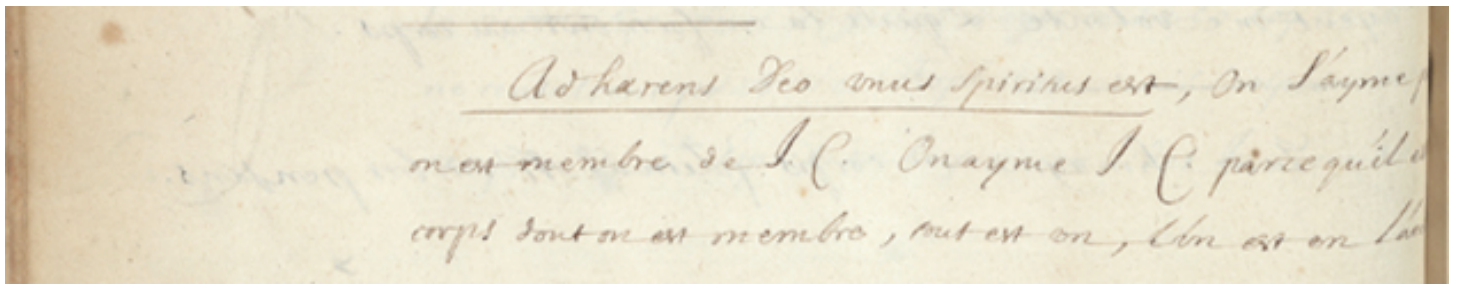 Adhærens Deo unus spiritus est, On s'ayme
on est membre de J. C. On ayme J. C. parce qu'il e
corps dont on est membre, tout est un, l'un est en l'a